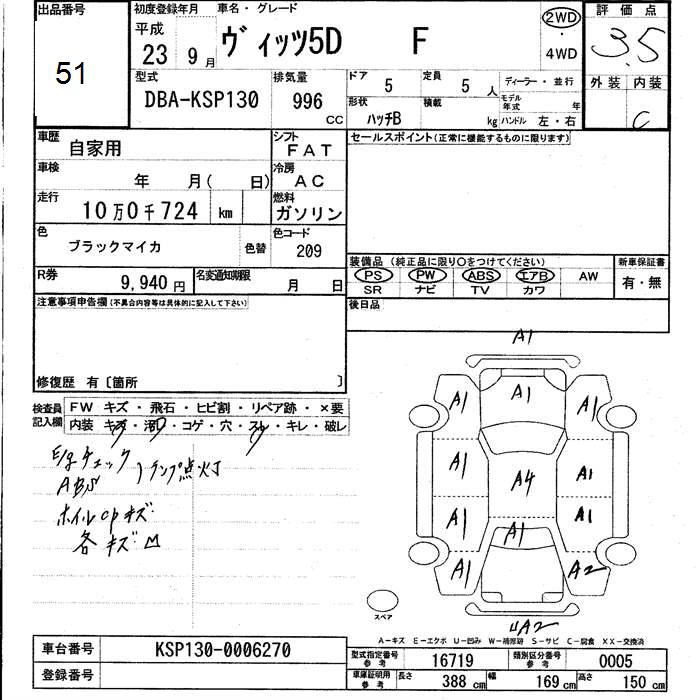 出品番号
51
初度登録年月
平成
23 9月
車名・グレード
ヴィッツ5D F
2WD
・
4WD
評価点
3.5
外装 内装
C
型式
DBA-KSP130
排気量
996
CC
ドア
5
定員
5 人
ディーラー・並行
形状
ハッチB
積載
kg
モデル年式 年
ハンドル 左・右
車歴
自家用
シフト
FAT
セールスポイント(正常に機能するものに限ります)
車検
年 月( 日)
冷房
AC
走行
10万0千724 km
燃料
ガソリン
色
ブラックマイカ
色替
色コード
209
装備品 (純正品に限り○をつけてください)
PS PW ABS エアB AW
SR ナビ TV カワ
新車保証書
有・無
R券
9,940円
名変通知期限
月 日
後日品
注意事項申告欄(不具合内容等は具体的に記入して下さい)
修復歴 有〔箇所 〕
検査員記入欄
FW キズ・飛石・ヒビ割・リペア跡・×要
内装 キズ・汚レ・コゲ・穴・スレ・キレ・破レ
E/gチェック
ABS
)ランプ点灯
ホイルcpキズ
各キズ凹
A1
A1 A1 A1
A1 A4 A1
A1 A1 A1
A1 A2
UA2
スペア
A-キズ E-エクボ U-凹み W-補修跡 S-サビ C-腐食 XX-交換済
車台番号
KSP130-0006270
登録番号
型式指定番号
参考
16719
類別区分番号
参考
0005
車庫証明用
参考
長さ
388 cm
幅
169 cm
高さ
150 cm